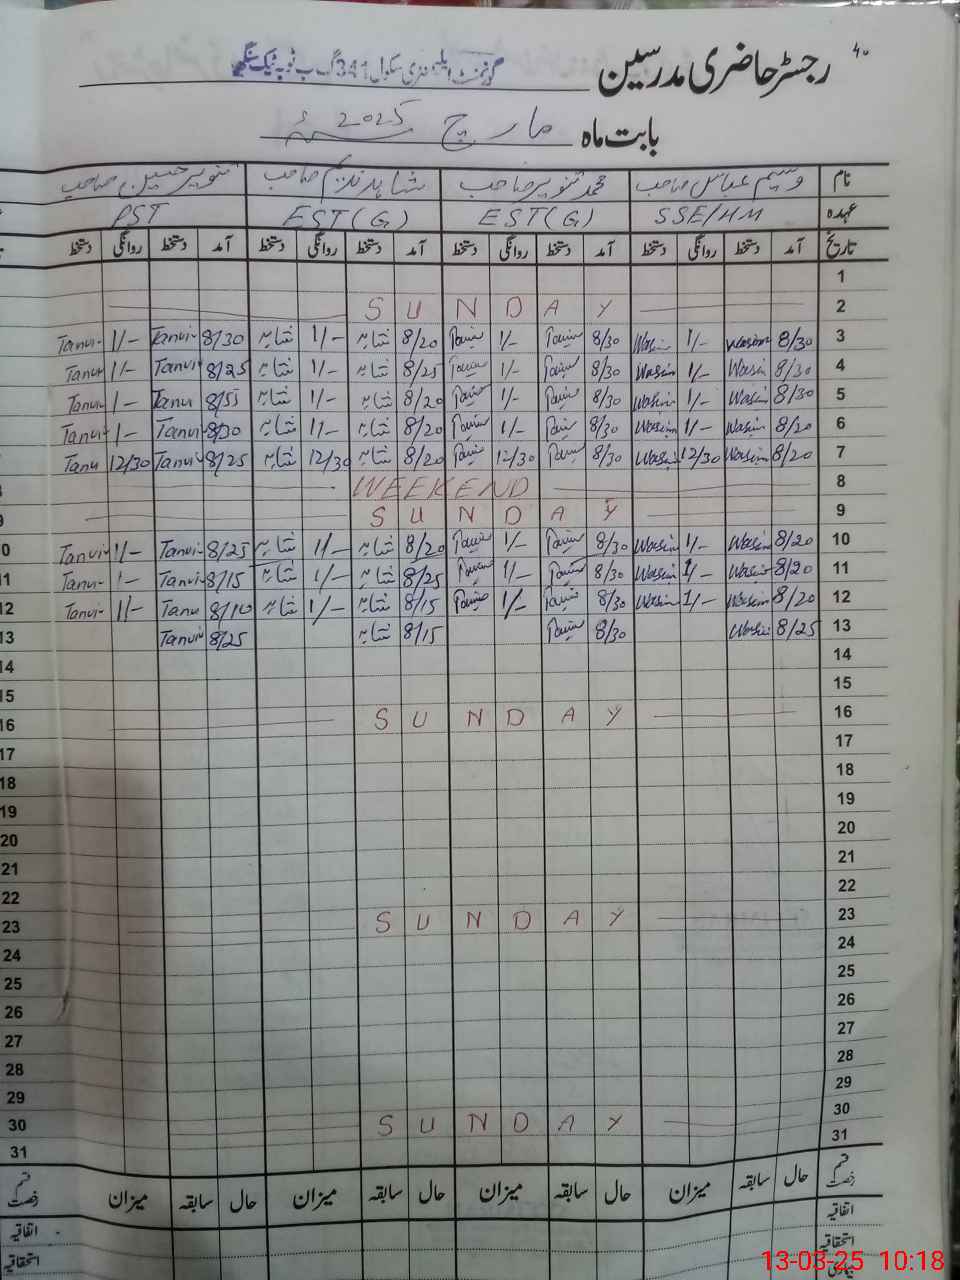 ۴۰
رجسٹر حاضری مدرسین گورنمنٹ ایلیمنٹری سکول 341 گ ب ٹوبہ ٹیک سنگھ
بابت ماہ مارچ 2025ء
نام وسیم عباس صاحب محمد تنویر صاحب شاہد ندیم صاحب تنویر حسین صاحب
عہدہ SSE/HM EST(G) EST(G) PST
تاریخ آمد دستخط روانگی دستخط آمد دستخط روانگی دستخط آمد دستخط روانگی دستخط آمد دستخط روانگی دستخط
1
2 SUNDAY
3 8/30 Wasim 1/- Wasim 8/30 1/- 8/20 شاہد 1/- شاہد 8/30 Tanvir 1/- Tanvir
4 8/30 Wasim 1/- Wasim 8/30 1/- 8/25 شاہد 1/- شاہد 8/25 Tanvir 1/- Tanvir
5 8/30 Wasim 1/- Wasim 8/30 1/- 8/20 شاہد 1/- شاہد 8/55 Tanvir 1/- Tanvir
6 8/20 Wasim 1/- Wasim 8/30 1/- 8/20 شاہد 1/- شاہد 8/30 Tanvir 1/- Tanvir
7 8/20 Wasim 12/30 Wasim 8/30 12/30 8/20 شاہد 12/30 شاہد 8/25 Tanvir 12/30 Tanvir
8 WEEKEND 8
9 SUNDAY 9
10 8/20 Wasim 1/- Wasim 8/30 1/- 8/20 شاہد 1/- شاہد 8/25 Tanvir 1/- Tanvir 10
11 8/20 Wasim 1/- Wasim 8/30 1/- 8/25 شاہد 1/- شاہد 8/15 Tanvir 1/- Tanvir 11
12 8/20 Wasim 1/- Wasim 8/30 1/- 8/15 شاہد 1/- شاہد 8/10 Tanvir 1/- Tanvir 12
13 8/25 Wasim 8/30 8/15 شاہد 8/25 Tanvir 13
14 14
15 15
16 SUNDAY 16
17 17
18 18
19 19
20 20
21 21
22 22
23 SUNDAY 23
24 24
25 25
26 26
27 27
28 28
29 29
30 SUNDAY 30
31 31
قسم رخصت حال سابقہ میزان حال سابقہ میزان حال سابقہ میزان حال سابقہ میزان قسم رخصت
اتفاقیہ اتفاقیہ
استحقاقیہ استحقاقیہ
بیماری
13-03-25 10:18